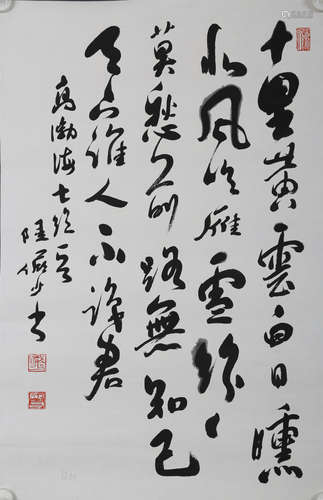 十里黄雲白日曛
北風吹雁雪紛〻
莫愁前路無知己
天下誰人不識君
高渤海七絶一首
陸儼少書